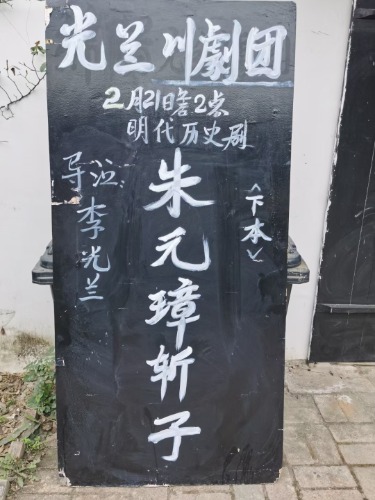 光兰川劇团
2月21日下午2点
明代历史剧
朱元璋斩子
<下本>
导泣:李光兰